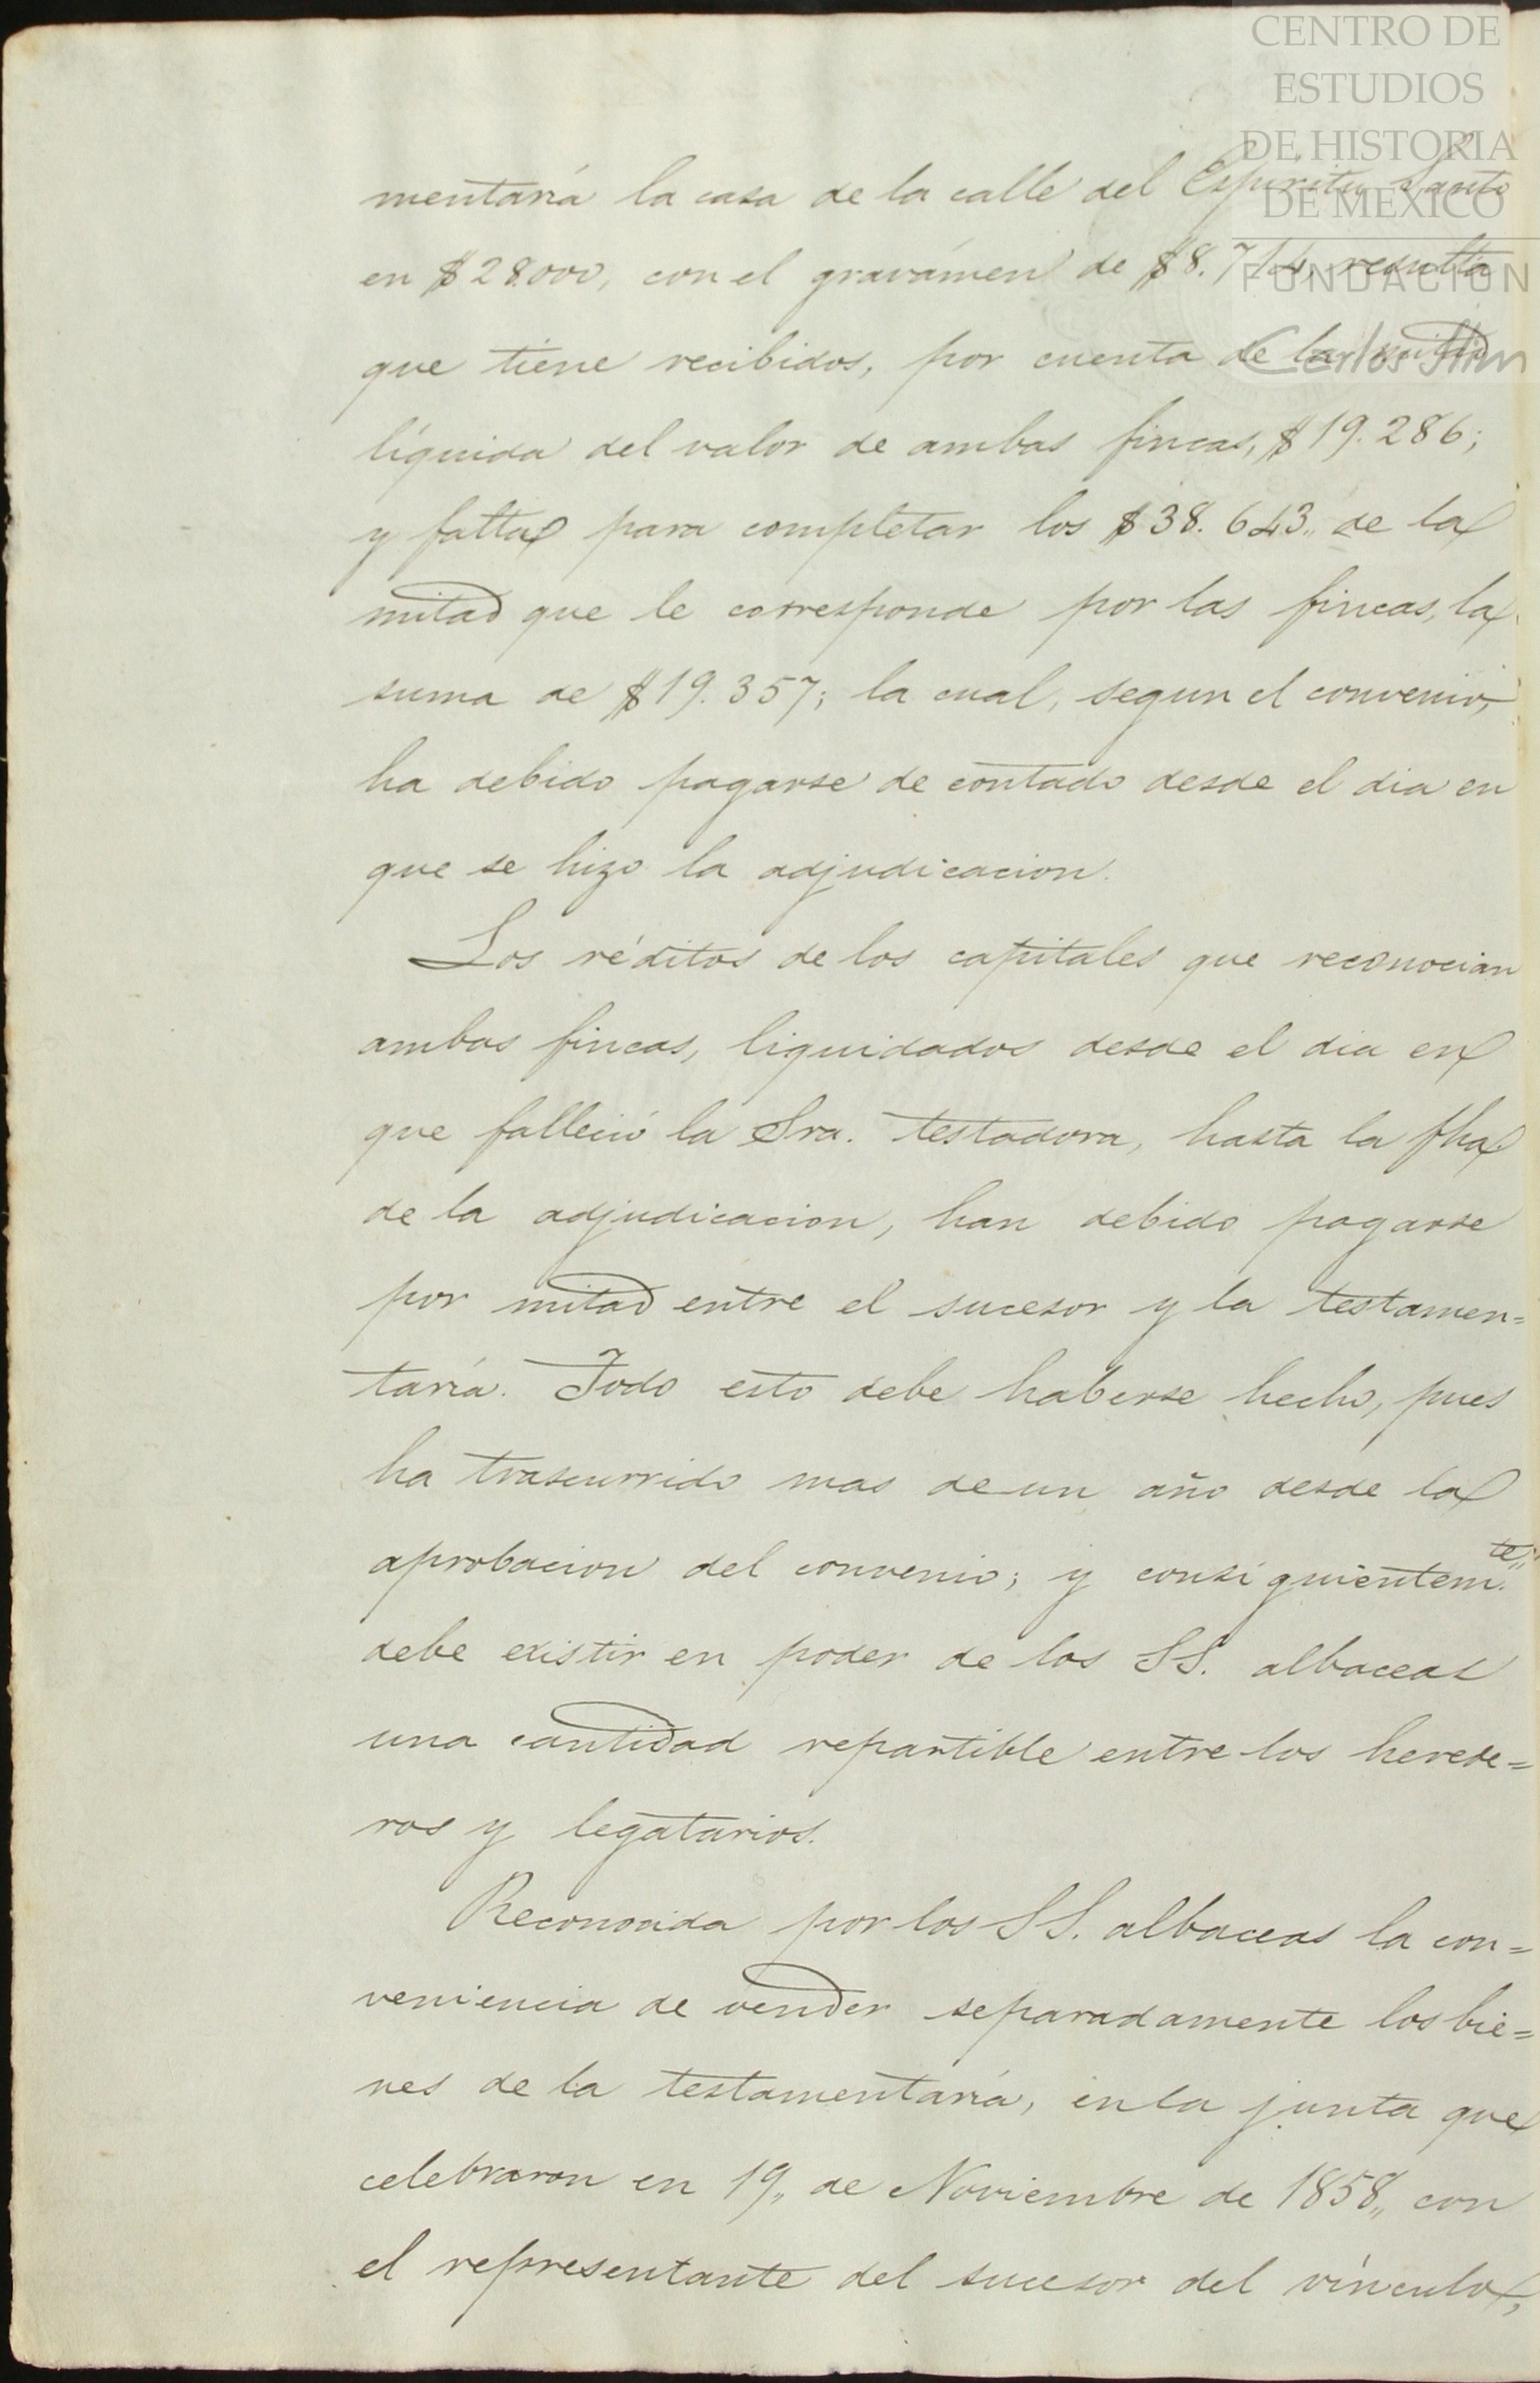 CENTRO DE
ESTUDIOS
DE HISTORIA
DE MEXICO
FUNDACION
Carlos Slim
mentaría la casa de la calle del Espíritu Santo
en $28.000, con el gravámen de $8.714, resulta
que tiene recibidos, por cuenta de la mitad
líquida del valor de ambas fincas, $19.286;
y faltan para completar los $38.643,, de la
mitad que le corresponde por las fincas, la
suma de $19.357; la cual, segun el convenio,
ha debido pagarse de contado desde el dia en
que se hizo la adjudicacion.
Los réditos de los capitales que reconocian
ambas fincas, liquidados desde el dia en
que falleció la Sra. testadora, hasta la fha
de la adjudicacion, han debido pagarse
por mitad entre el sucesor y la testamen=
taría. Todo esto debe haberse hecho, pues
ha trascurrido mas de un año desde la
aprobacion del convenio; y consiguientem.te
debe existir en poder de los SS. albaceas
una cantidad repartible entre los herede=
ros y legatarios.
Reconocida por los SS. albaceas la con=
veniencia de vender separadamente los bie=
nes de la testamentaría, en la junta que
celebraron en 19,, de Noviembre de 1858,, con
el representante del sucesor del vínculo,